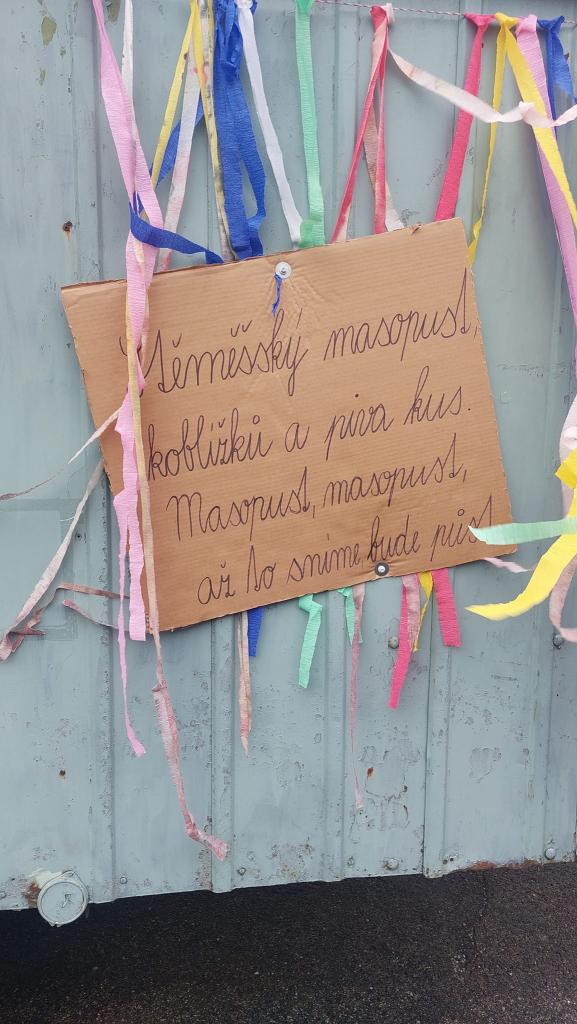 Štěměšský masopust,
koblížků a piva kus.
Masopust, masopust,
až to sníme bude půst